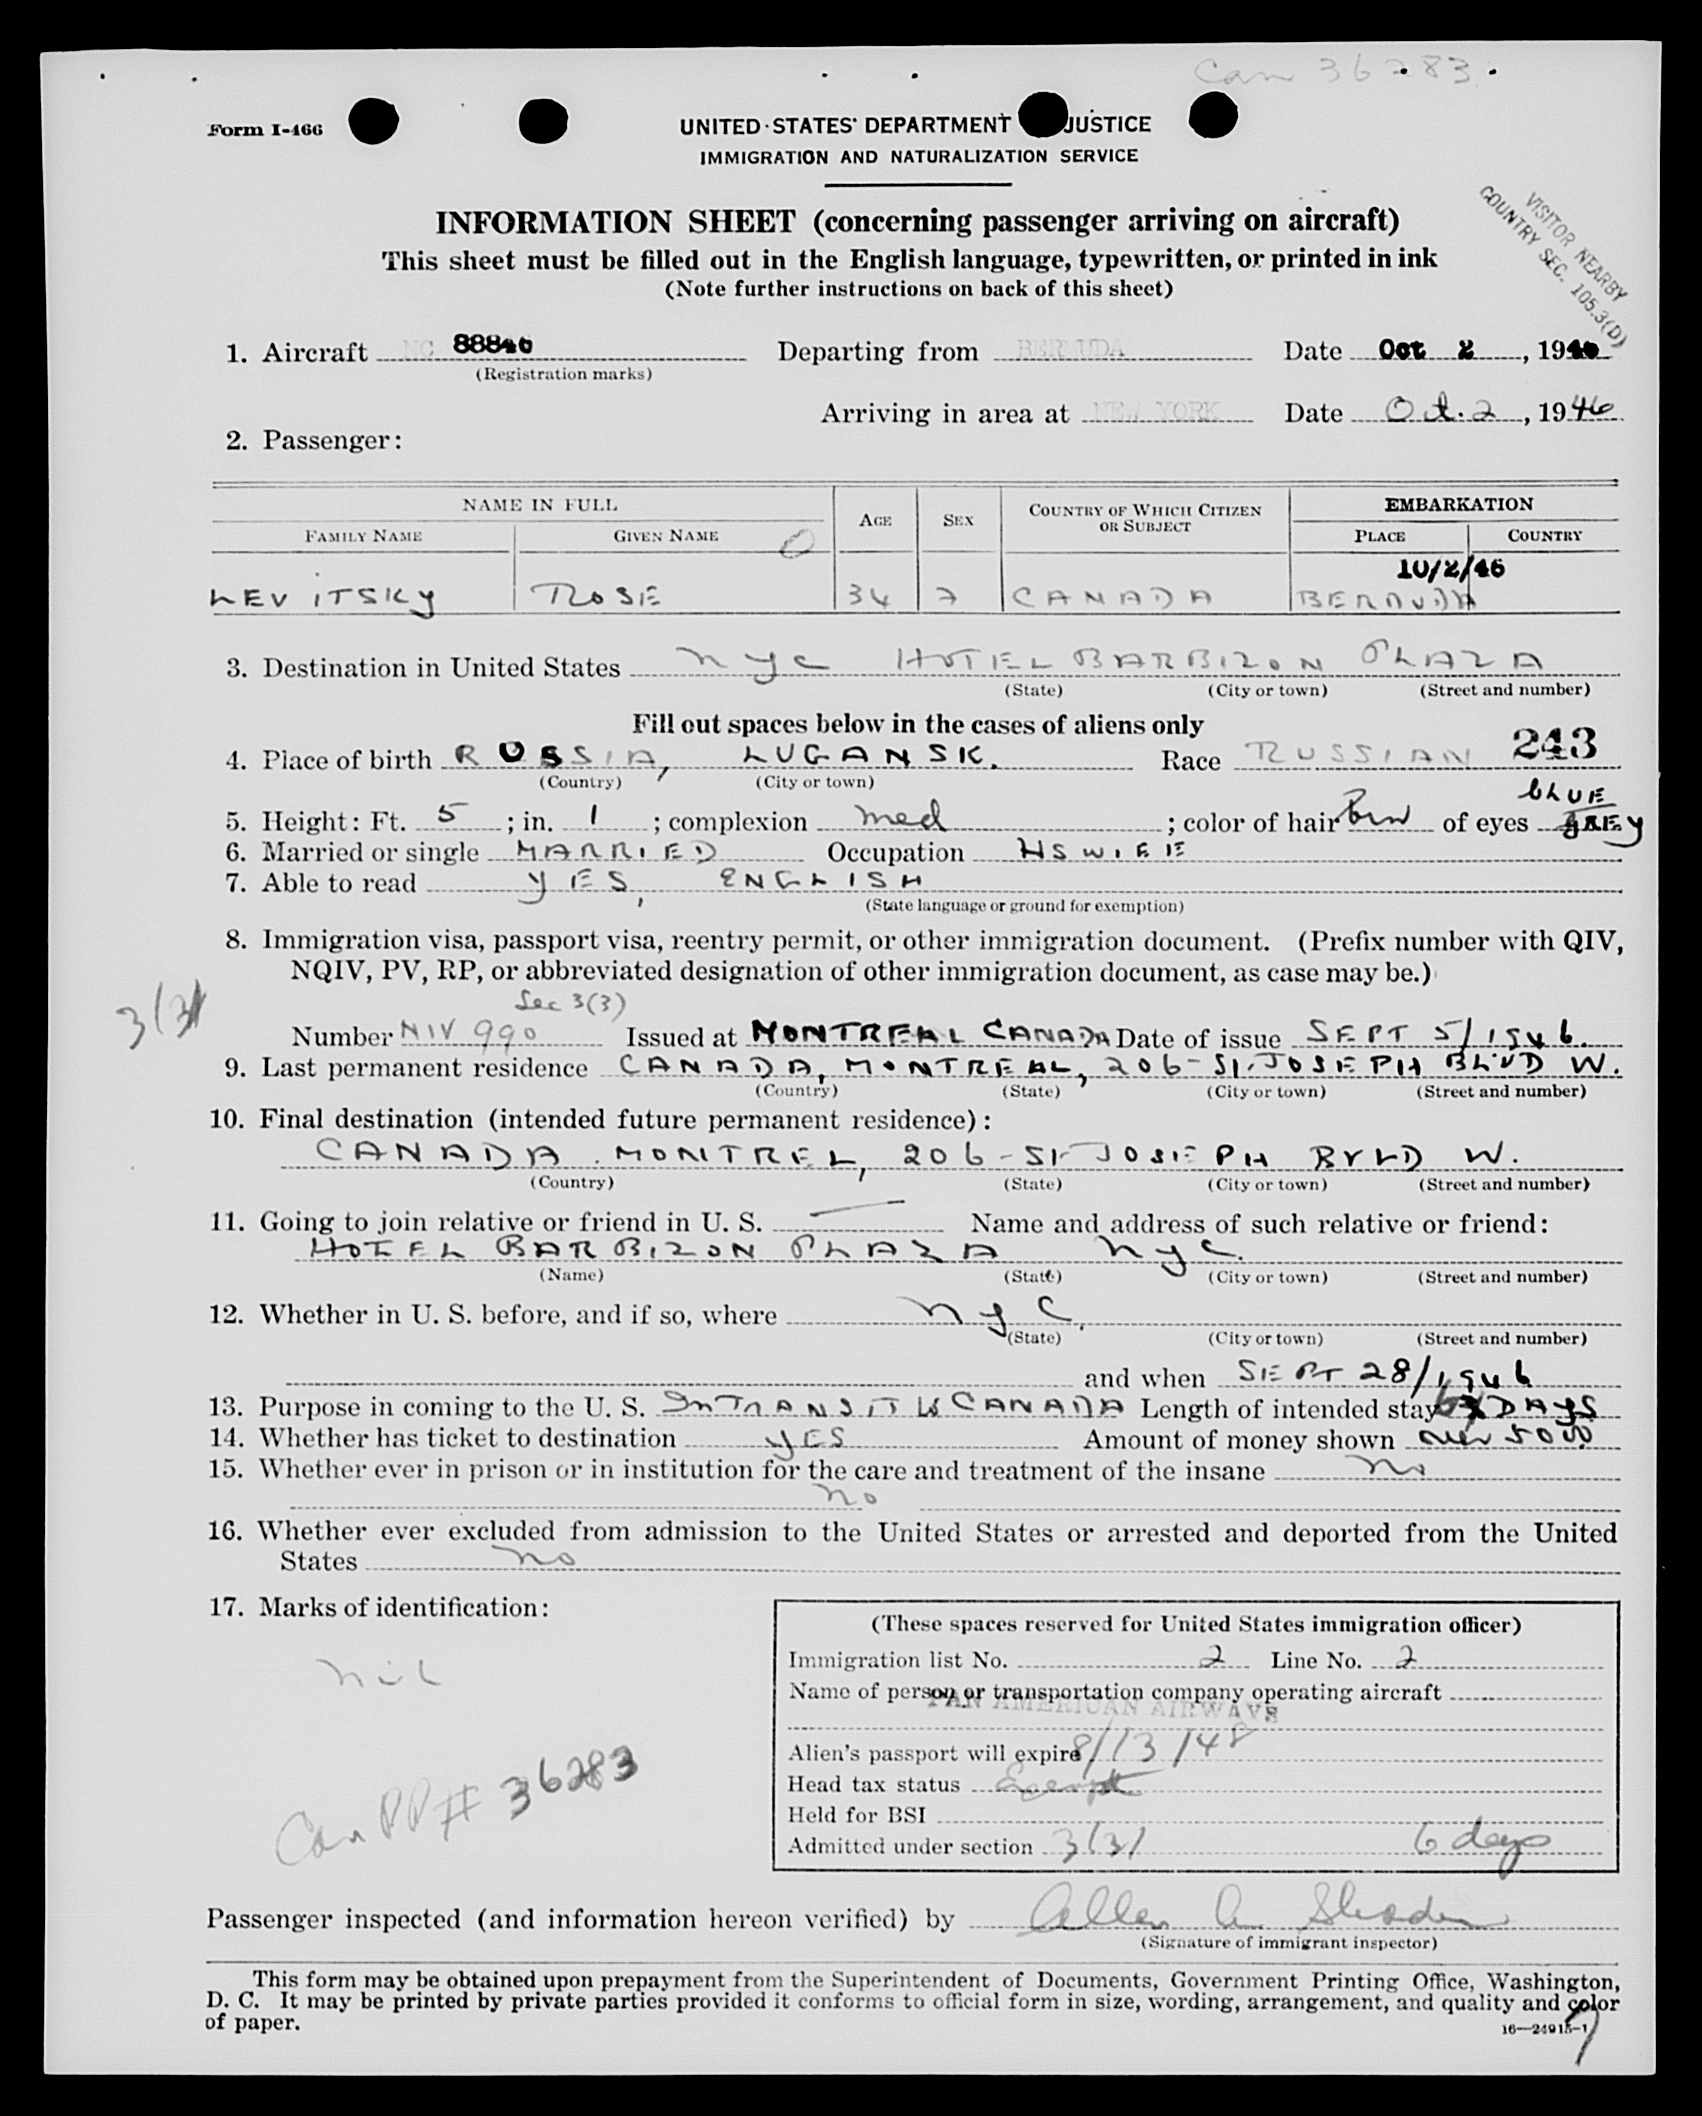 Can 36283.
Form I-466
UNITED STATES DEPARTMENT JUSTICE
IMMIGRATION AND NATURALIZATION SERVICE
VISITOR NEARBY
COUNTRY SEC. 105.3(D)
INFORMATION SHEET (concerning passenger arriving on aircraft)
This sheet must be filled out in the English language, typewritten, or printed in ink
(Note further instructions on back of this sheet)
1. Aircraft NC 88840 Departing from BERMUDA Date Oct 2, 1946
(Registration marks)
Arriving in area at NEW YORK Date Oct. 2, 1946
2. Passenger:
NAME IN FULL AGE SEX COUNTRY OF WHICH CITIZEN OR SUBJECT EMBARKATION
FAMILY NAME GIVEN NAME PLACE COUNTRY
10/2/46
LEVITSKY ROSE 34 7 CANADA BERMUDA
3. Destination in United States NYC HOTEL BARBIZON PLAZA
(State) (City or town) (Street and number)
Fill out spaces below in the cases of aliens only
4. Place of birth RUSSIA, LUGANSK. Race RUSSIAN 243
(Country) (City or town)
BLUE
5. Height: Ft. 5; in. 1; complexion med; color of hair Brn of eyes GREY
6. Married or single MARRIED Occupation HSWIFE
7. Able to read YES, ENGLISH
(State language or ground for exemption)
8. Immigration visa, passport visa, reentry permit, or other immigration document. (Prefix number with QIV,
NQIV, PV, RP, or abbreviated designation of other immigration document, as case may be.)
3(3) Sec 3(3)
Number NIV 990 Issued at MONTREAL CANADA Date of issue SEPT 5/1946.
9. Last permanent residence CANADA, MONTREAL, 206-ST. JOSEPH BLVD W.
(Country) (State) (City or town) (Street and number)
10. Final destination (intended future permanent residence):
CANADA. MONTREL, 206-ST JOSEPH BVLD W.
(Country) (State) (City or town) (Street and number)
11. Going to join relative or friend in U. S. — Name and address of such relative or friend:
HOTEL BARBIZON PLAZA NYC.
(Name) (State) (City or town) (Street and number)
12. Whether in U. S. before, and if so, where NYC.
(State) (City or town) (Street and number)
and when SEPT 28/1946
13. Purpose in coming to the U. S. In TRANSIT to CANADA Length of intended stay DAYS
14. Whether has ticket to destination YES Amount of money shown over 5000
15. Whether ever in prison or in institution for the care and treatment of the insane no
no
16. Whether ever excluded from admission to the United States or arrested and deported from the United
States no
17. Marks of identification:
nil
Can PP# 36283
(These spaces reserved for United States immigration officer)
Immigration list No. 2 Line No. 2
Name of person or transportation company operating aircraft
PAN AMERICAN AIRWAYS
Alien's passport will expire 8/13/48
Head tax status Exempt
Held for BSI
Admitted under section 3(3) 6 days
Passenger inspected (and information hereon verified) by Allen A.
(Signature of immigrant inspector)
This form may be obtained upon prepayment from the Superintendent of Documents, Government Printing Office, Washington,
D. C. It may be printed by private parties provided it conforms to official form in size, wording, arrangement, and quality and color
of paper.
16—24915-1